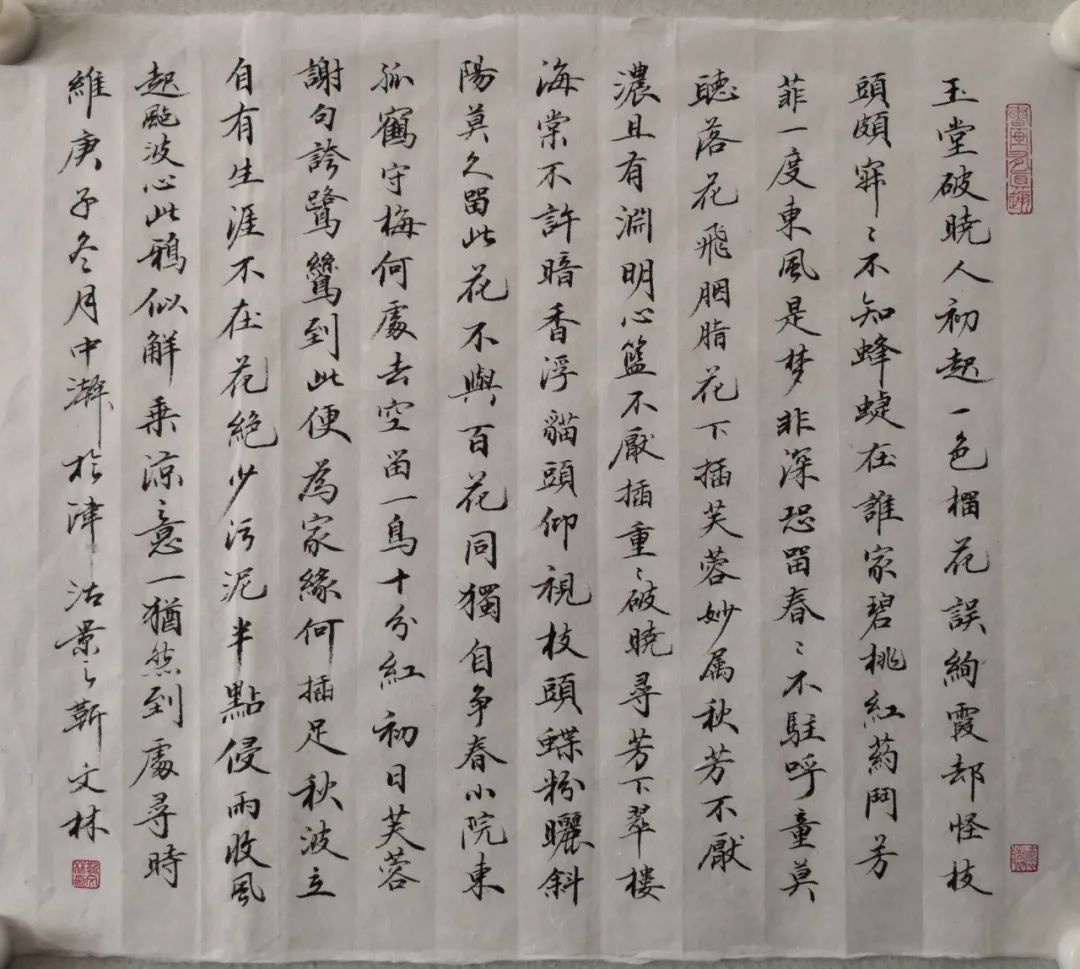 玉堂破曉人初起一色榴花誤絢霞却怪枝
頭頗寂〻不知蜂蜨在誰家碧桃紅葯鬥芳
菲一度東風是梦非深恐留春〻不駐呼童莫
聽落花飛胭脂花下插芙蓉妙属秋芳不厭
濃且有淵明心籃不厭插重〻破曉尋芳下翠樓
海棠不許暗香浮貓頭仰視枝頭蝶粉曬斜
陽莫久留此花不與百花同獨自争春小院東
孤鶴守梅何處去空留一鳥十分紅初日芙蓉
謝句誇鷺鷥到此便為家緣何插足秋波立
自有生涯不在花絕少污泥半點侵雨收風
起颭波心此鴉似解乗涼〻意一猶然到處尋時
維庚子冬月中澣於津沽景之靳文林